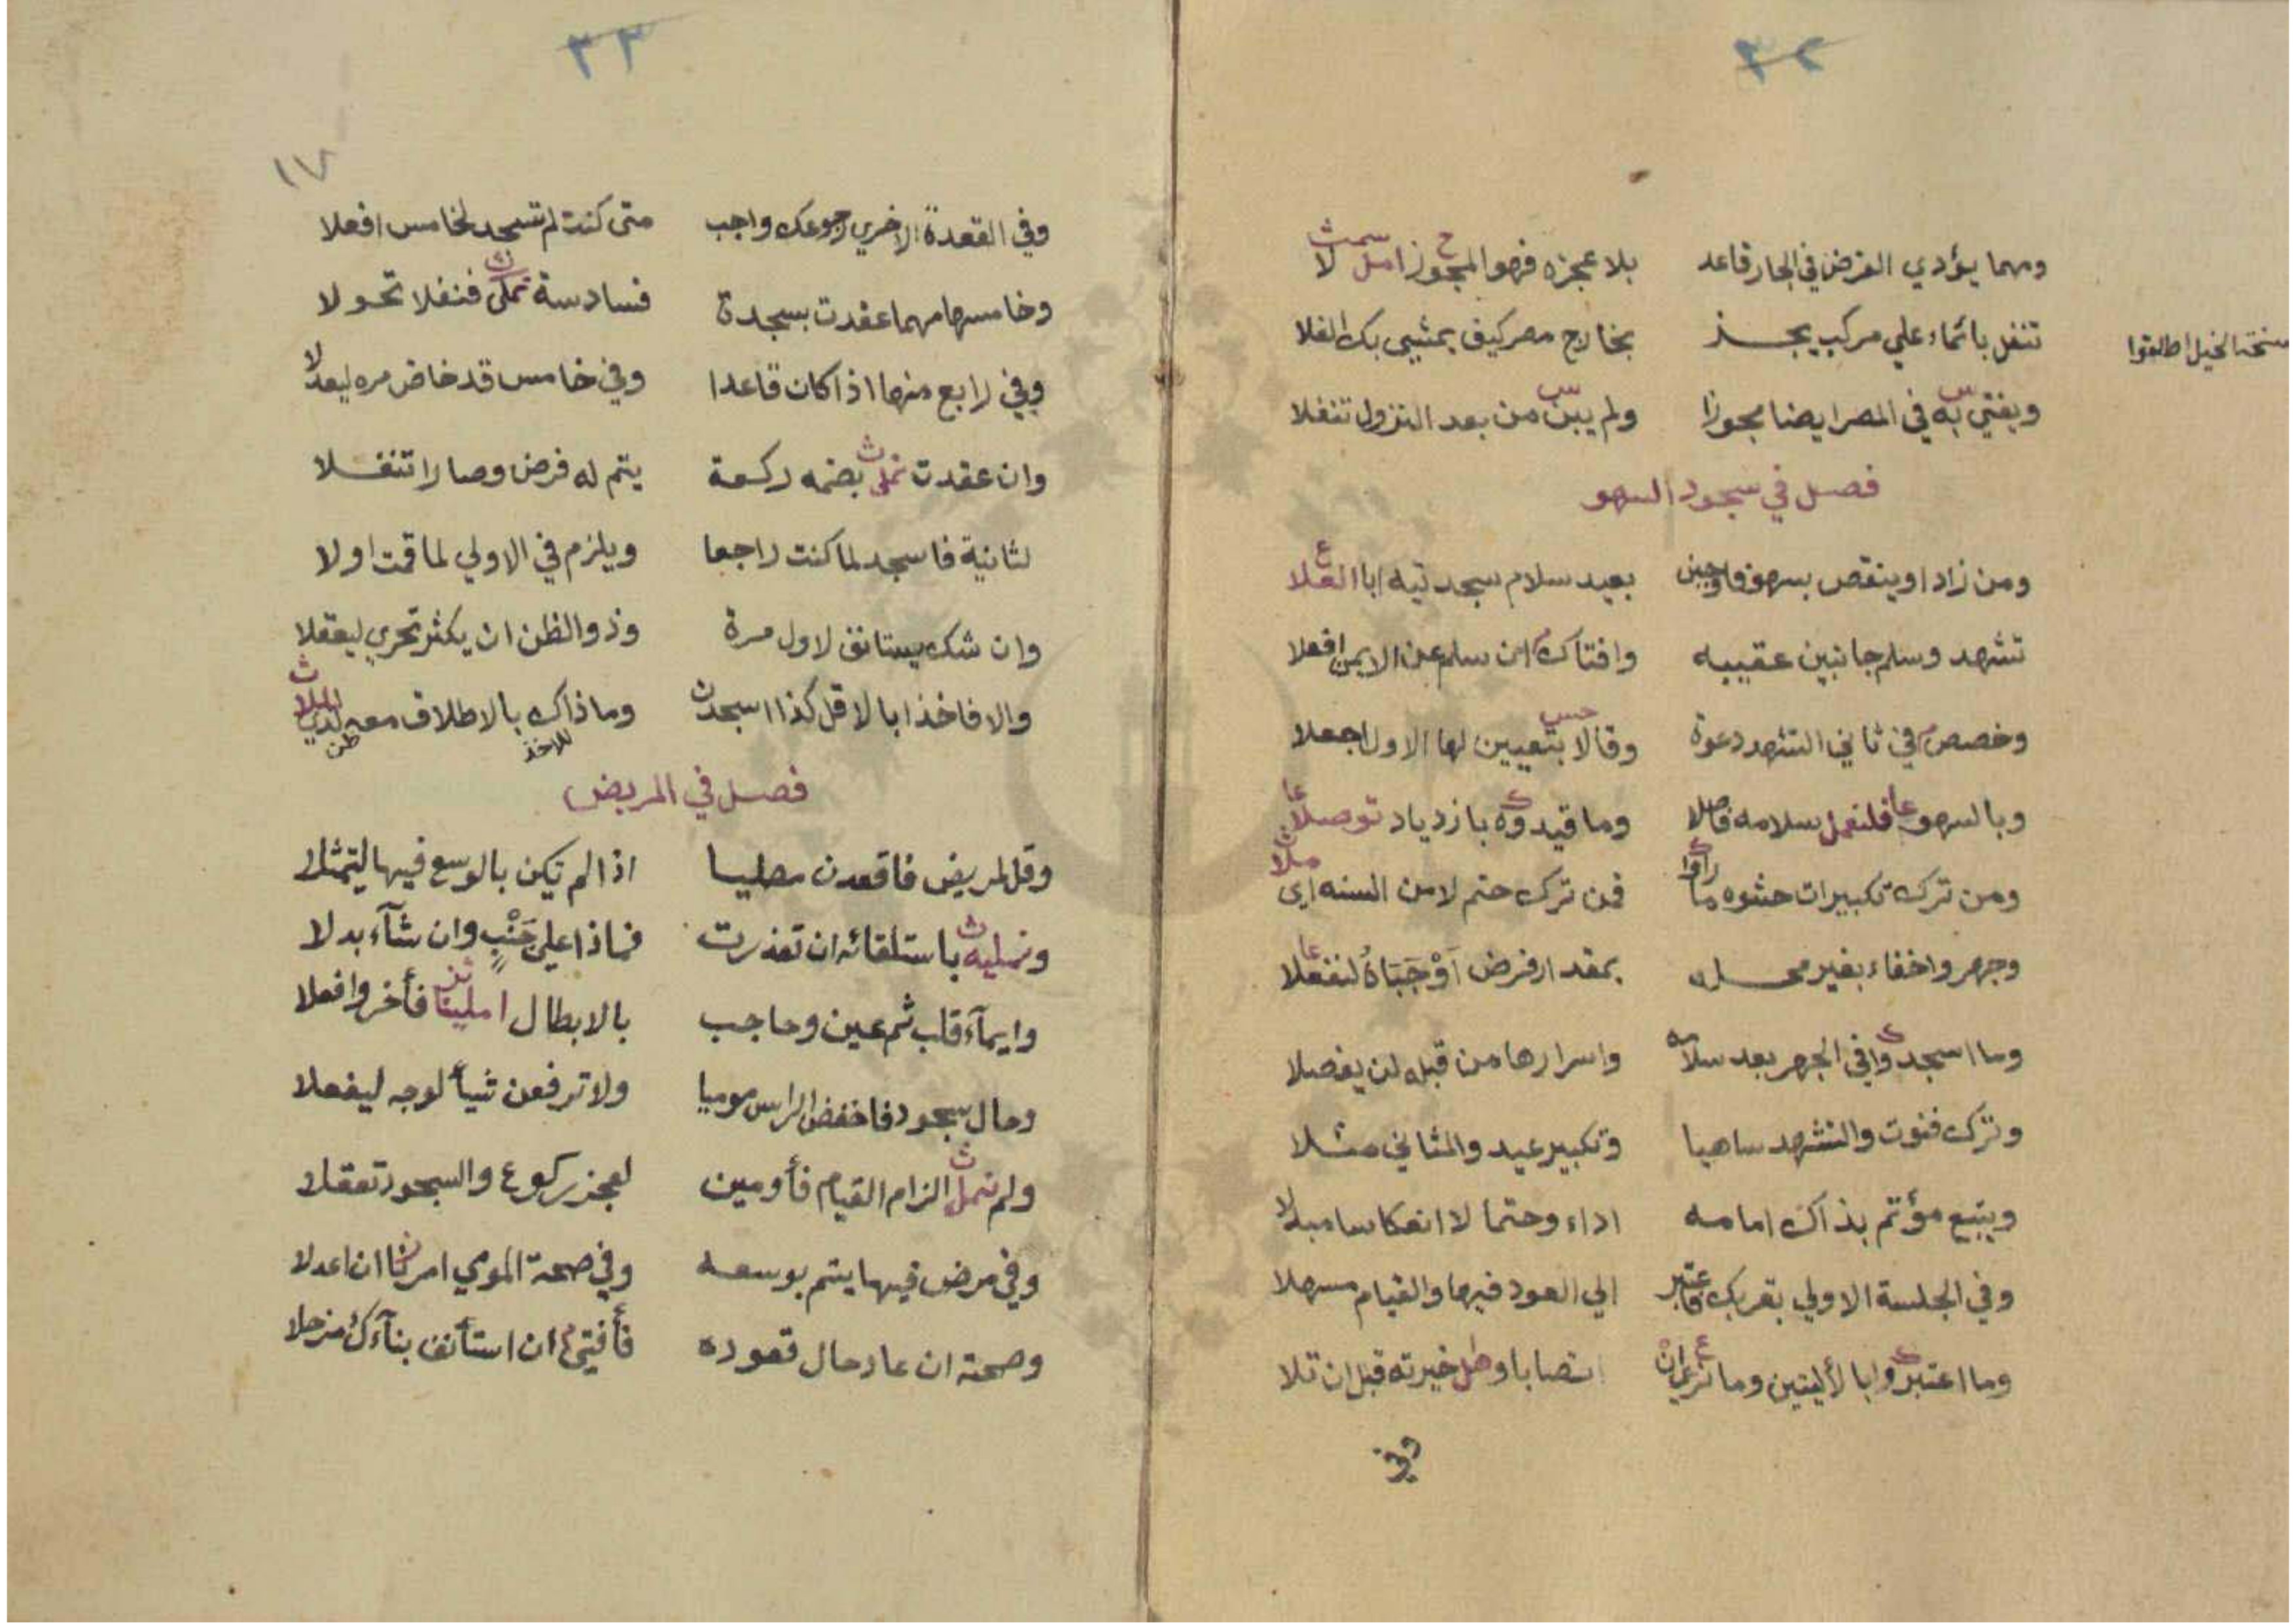 ٣٢
ومهما يؤدي الفرض في الجار قاعد بلا عجزه فهو المجوز امل لا
تنفل بائماء علي مركب يجد بخارج مصر كيف يمشي بك الفلا
نسخة الخيل اطلقوا
ويفتي به في المصر ايضا مجوزا ولم يبن من بعد النزول تنفلا
فصل في سجود السهو
ومن زاد او ينقص بسهو فاوجبن بعيد سلام سجدتيه ابا العلا
تشهد وسلم جانبين عقيبه وافتاك ان سلم عن الايمن افعلا
وخصص في ثاني التشهد دعوة وقالا بتعيين لها الاول اجعلا
وبالسهو فلنعمل سلامه فاصلا وما قيدوه بازدياد توصلا
ومن ترك تكبيرات حشوه ما راوا فمن ترك حتم لا من السنه اي ملا
وجهر واخفاء بغير محله بمقدار فرض اوجباه لنفعلا
وما اسجدوا في الجهر بعد سلامه واسرارها من قبله لن يفصلا
وترك قنوت والتشهد ساهيا وتكبير عيد والمثاني مثلا
ويتبع مؤتم بذاك امامه اداء وحتما لا انعكاسا مبدلا
وفي الجلسة الاولي بقربك فاعتبر الي العود فيها والقيام مسهلا
وما اعتبروا بالأليتين وما نري ان انتصابا وطل خيرته قبل ان تلا
وفي
٣٣
١٧
وفي القعدة الاخري رجوعك واجب متى كنت لم تسجد لخامس افعلا
وخامسها مهما عقدت بسجدة فسادسة نملي فنفلا تحولا
وفي رابع منها اذا كان قاعدا وفي خامس قد خاض مره ليعدلا
وان عقدت نملي بضمه ركعة يتم له فرض وصارا تنفلا
لثانية فاسجد لما كنت راجعا ويلزم في الاولي لما قمت اولا
وان شك يستانف لاول مرة وذو الظن ان يكثر تحري ليعقلا
والا فاخذا بالاقل كذا اسجدن وماذاك بالاطلاق معه لدي الملا
للاخذ ظن
فصل في المريض
وقل لمريض فاقعدن مصليا اذا لم تكن بالوسع فيها ليتمثلا
ونمليه باستلقائه ان تعذرت فماذا علي جنب وان شآء بدلا
وايمآء قلب ثم عين وحاجب بالابطال املينا فأخر وافعلا
وحال سجود فاخفض الراس موميا ولا ترفعن شيأ لوجه ليفعلا
ولم نمل الزام القيام فأومين لعجز ركوع والسجود تعقلا
وفي مرض فيها يتم بوسعه وفي صحة المومي امرنا ان اعدلا
وصحته ان عاد حال قعوده فأفتي ان استأنف بنآءك منزحلا